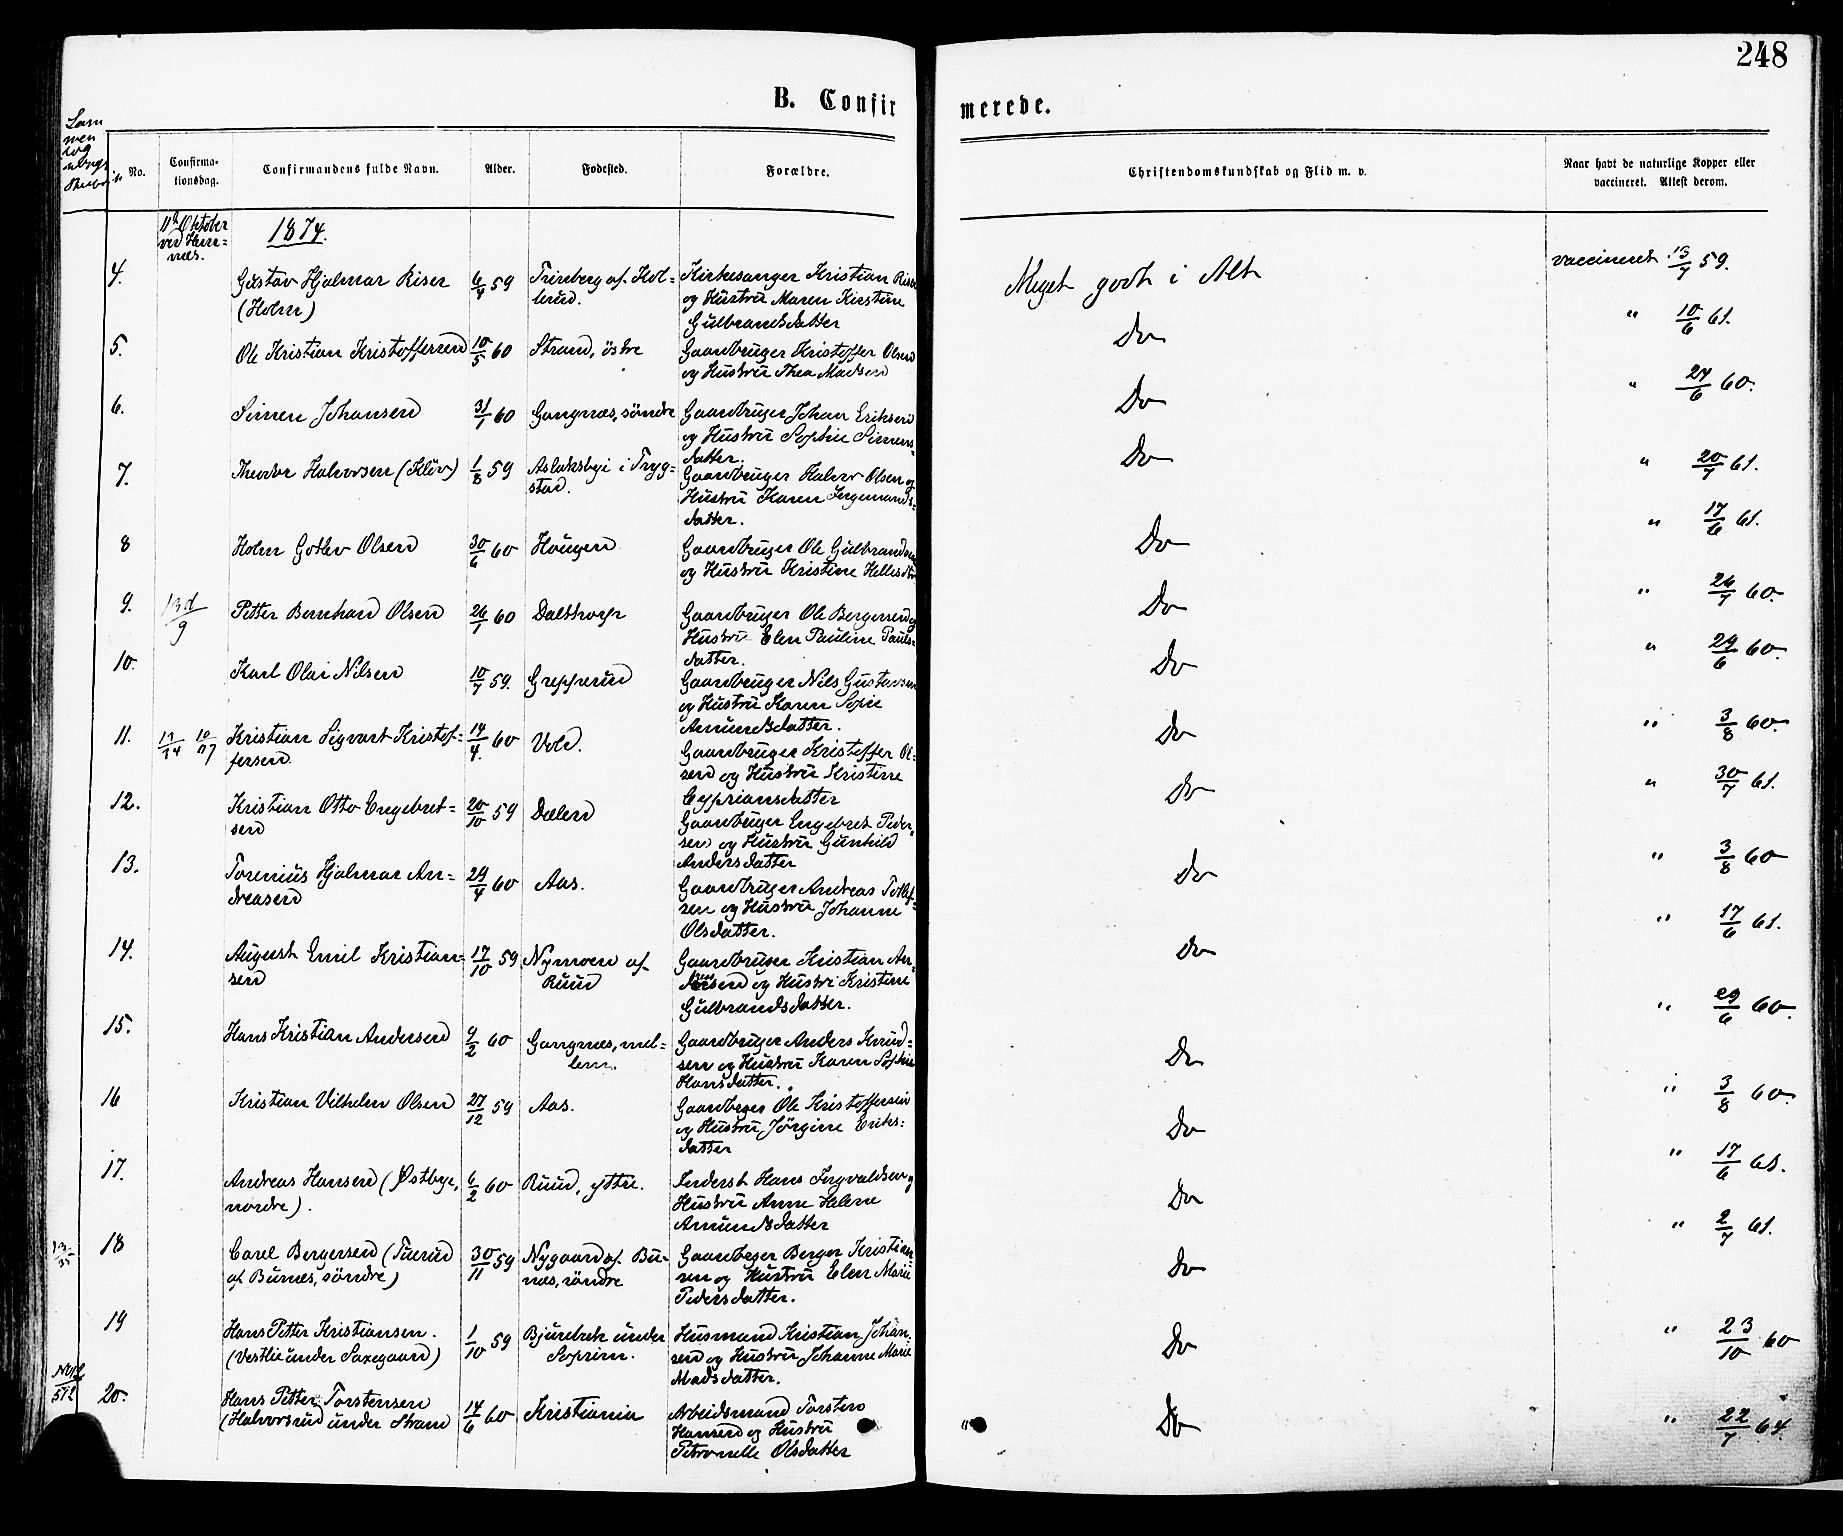 248
B. Confir
merede.
No.
Confirma-
tionsdag.
Confirmandens fulde Navn.
Alder.
Fødested.
Forældre.
Christendomskundskab og Flid m. v.
Naar havt de naturlige Kopper eller
vaccineret. Attest derom.
Oktober
ved Hem=
næs.
1874.
4.
Gustav Hjalmar Riser
(Holm)
59
af Hol=
lerud.
Kirkesanger Kristian Riser
og Hustru Maren Kirstine
Gulbrandsdatter
Meget godt i Alt
vaccineret 13/7 59.
5.
Ole Kristian Kristoffersen
10/5 60
Strand, östre
Gaardbruger Kristoffer Olsen
og Hustru Thea Madsen
Do
" 10/6 61.
6.
Simen Johansen
31/1 60
Gangnæs, søndre
Gaardbruger Johan Eriksen
og Hustru Sophie Simens=
datter.
Do
" 60.
7.
Theodor Halvorsen (Kløv)
1/8 59
Aslaksbyi i Tryg=
stad.
Gaardbruger Halvor Olsen og
Hustru Karen Ingemands=
datter.
Do
" 20/7 61.
8
Holm Gotlev Olsen
30/6 60
Haugen
Gaardbruger Ole Gulbrandsen
og Hustru Kristine
Do
" 17/6 61.
9.
Petter Bernhard Olsen
26/1 60
Dalthorp
Gaardbruger Ole Bergersen og
Hustru Elen Pauline Pauls=
datter.
Do
" 26/7 60.
10.
Karl Olai Nilsen
10/7 59.
Grepperud
Gaardbruger Nils Gustavsen
og Hustru Karen Sofie
Amundsdatter.
Do
" 29/6 60.
11.
Kristian Sigvart Kristof=
fersen.
14/4 60
Vold.
Gaardbruger Kristoffer Ol=
sen og Hustru Kristine
Cypriansdatter
Do
" 3/8 60.
12.
Kristian Otto Engebret=
sen
20/10 59
Dælen
Gaardbruger Engebret Peder=
sen og Hustru Gunhild
Andersdatter
Do
" 30/7 61.
13.
Torenius Hjalmar An=
dreasen
60
Aas.
Gaardbruger Andreas Tollef=
sen og Hustru Johanne
Olsdatter.
Do
" 3/8 60
14.
August Emil Kristian=
sen
17/10 59
Nymoen af
Ruud
Gaardbruger Kristian
og Hustru Kristine
Gulbrandsdatter.
Do
" 17/6 61.
15.
Hans Kristian Andersen
9/2 60
Gangnæs, mel=
lem.
Gaardbruger Anders Knud=
sen og Hustru Karen Sophie
Hansdatter.
Do
" 29/6 60.
16
Kristian Vilhelm Olsen
27/12 59
Aas.
Gaardbrger Ole Kristoffersen
og Hustru Jørgine Eriks=
datter
Do
" 3/8 60.
17.
Andreas Hansen (Østbye,
nordre).
6/2 60
Ruud, yttre.
Inderst Hans Ingvaldsen og
Hustru Anne Helene
Amundsdatter
Do
" 17/6 61.
18
Carel Bergersen (Tuerud
af Bunæs, søndre)
30/11 59
Nygaard af Bu=
næs, søndre
Gaardbrger Berger Kristian=
sen og Hustru Elen Marie
Pedersdatter.
Do
" 2/7 61.
19
Hans Petter Kristiansen.
(Vestlie under Saxegaard)
1/10 59
Bjurebæk under
Soprim.
Husmand Kristian Johan=
sen og Hustru Johanne Marie
Madsdatter.
Do
" 23/10 60
20.
Hans Petter Torstensen
(Halvorsrud under Strand
14/6 60
Kristiania
Arbeidsmand Torsten
Hansen og Hustru
Petronelle Olsdatter
" Do
" 22/7 64.